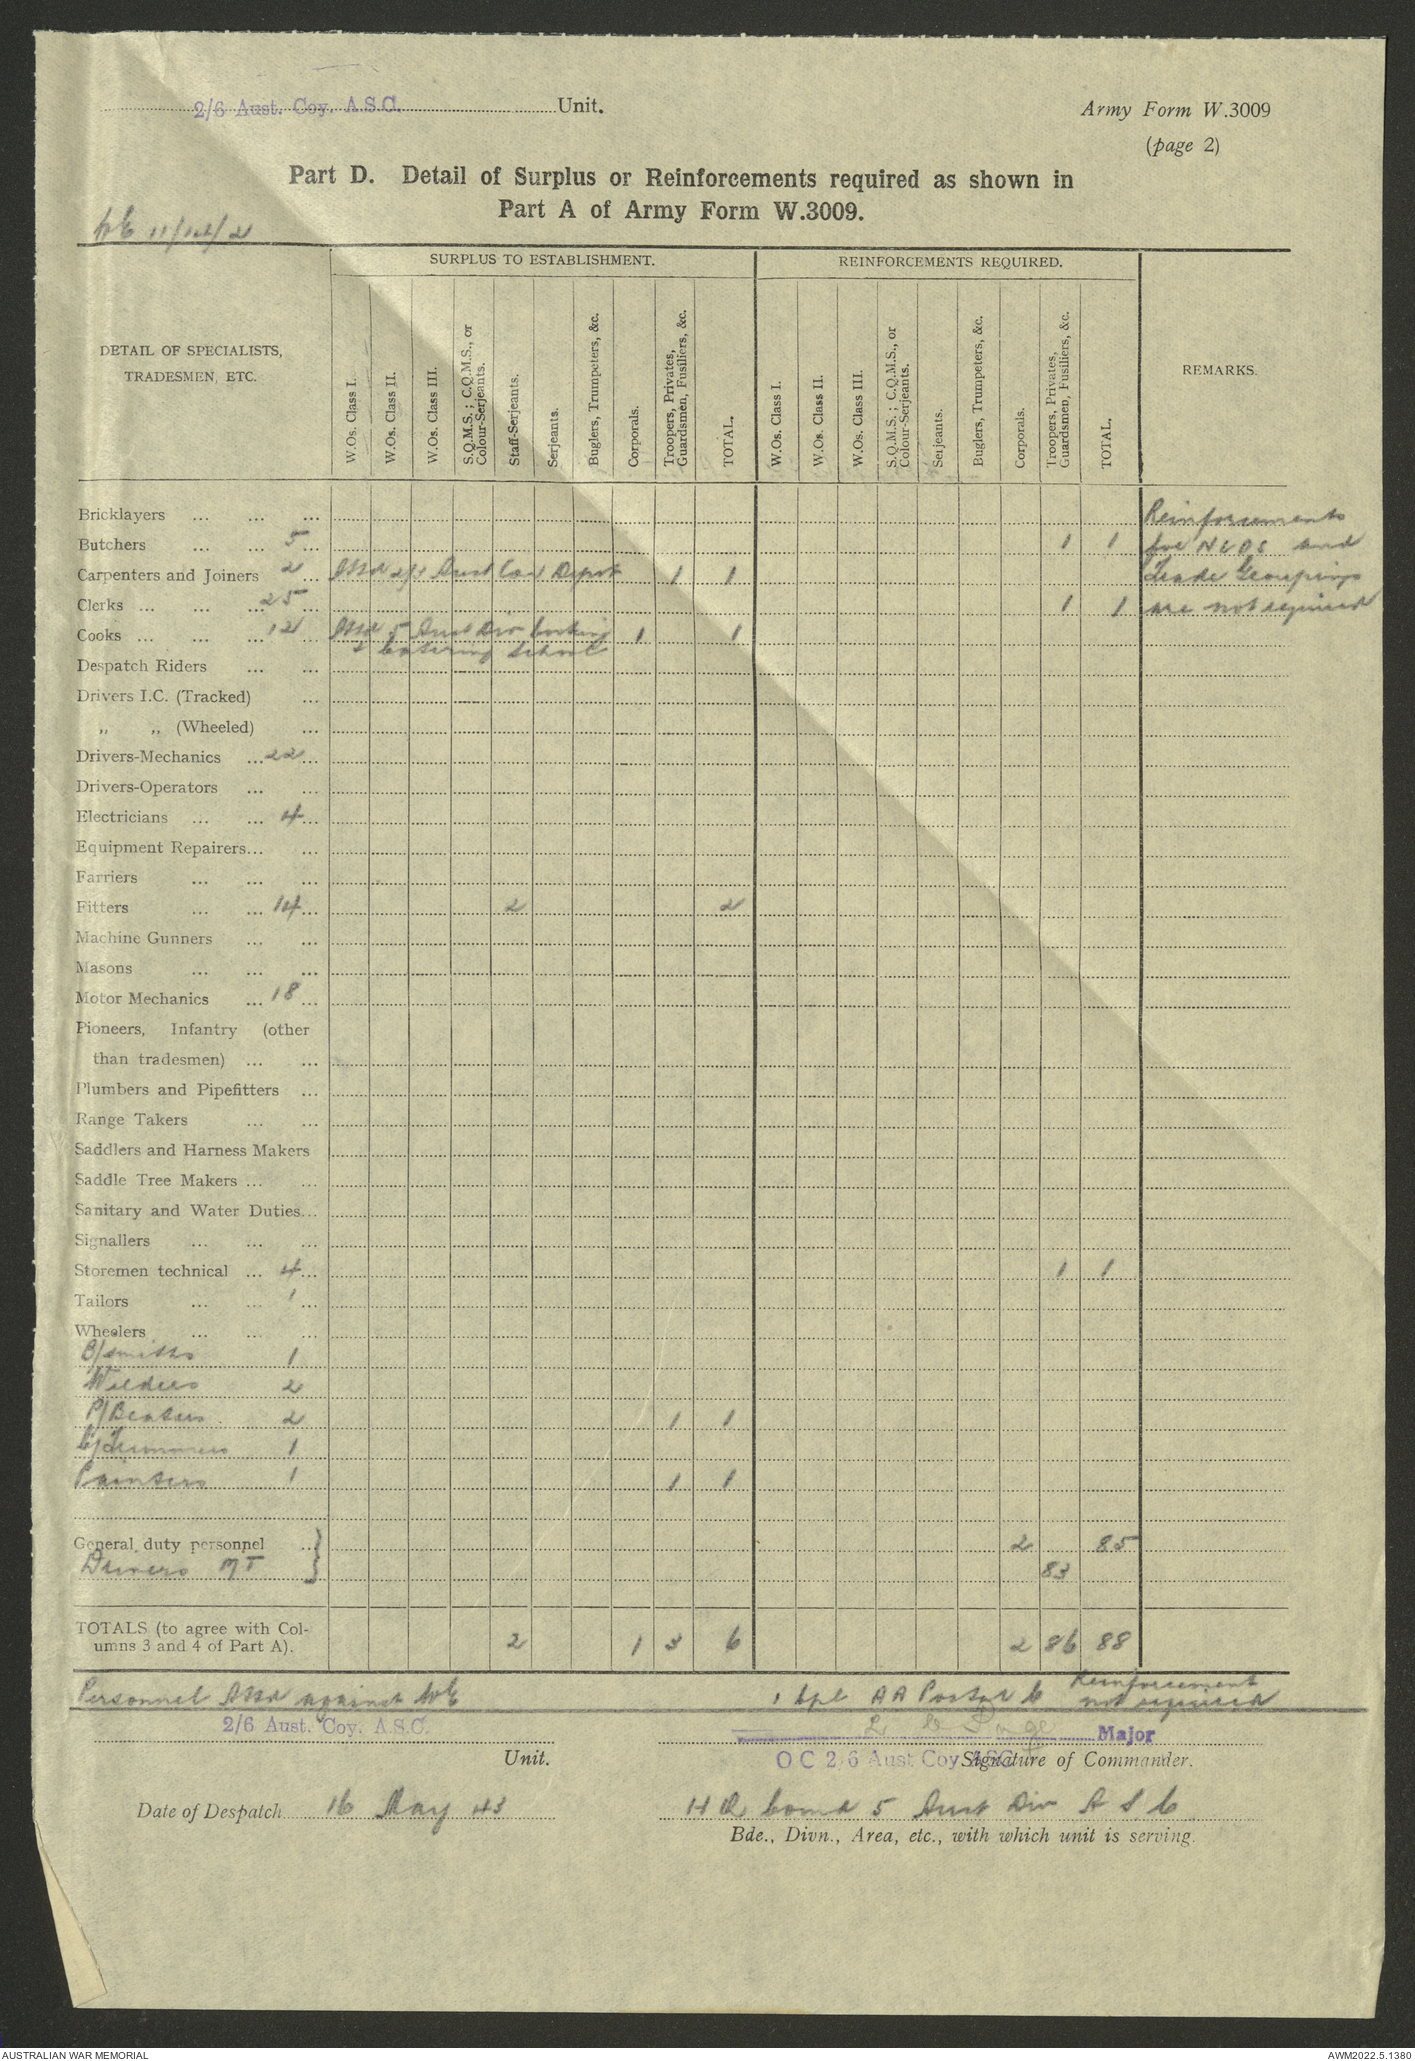 2/6 Aust. Coy. A.S.C. Unit.
Army Form W.3009
(page 2)
Part D. Detail of Surplus or Reinforcements required as shown in
Part A of Army Form W.3009.
WE 11/142/2
DETAIL OF SPECIALISTS, TRADESMEN, ETC.
SURPLUS TO ESTABLISHMENT.
REINFORCEMENTS REQUIRED.
REMARKS.
W.Os. Class I.
W.Os. Class II.
W.Os. Class III.
S.Q.M.S.; C.Q.M.S., or Colour-Serjeants.
Staff-Serjeants.
Serjeants.
Buglers, Trumpeters, &c.
Corporals.
Troopers, Privates, Guardsmen, Fusiliers, &c.
TOTAL.
W.Os. Class I.
W.Os. Class II.
W.Os. Class III.
S.Q.M.S.; C.Q.M.S., or Colour-Serjeants.
Serjeants.
Buglers, Trumpeters, &c.
Corporals.
Troopers, Privates, Guardsmen, Fusiliers, &c.
TOTAL.
Bricklayers ... ... ... Reinforcements
Butchers ... ... 5... 1 1 for NCOS and
Carpenters and Joiners 2 ... Attd 2/1 Aust Con Depot 1 1 Trade Groupings
Clerks ... ... ...25... 1 1 are not required
Cooks ... ... ...12... Attd 5 Aust Div Cooking 1 1
& Catering School
Despatch Riders ... ...
Drivers I.C. (Tracked) ...
,, ,, (Wheeled) ...
Drivers-Mechanics ...22...
Drivers-Operators ... ...
Electricians ... ... 4...
Equipment Repairers... ...
Farriers ... ... ...
Fitters ... ...14... 2 2
Machine Gunners ... ...
Masons ... ... ...
Motor Mechanics ...18...
Pioneers, Infantry (other
than tradesmen) ... ...
Plumbers and Pipefitters ...
Range Takers ... ...
Saddlers and Harness Makers
Saddle Tree Makers ... ...
Sanitary and Water Duties...
Signallers ... ... ...
Storemen technical ... 4... 1 1
Tailors ... ... 1 ...
Wheelers ... ... ...
B/smiths 1
Welders 2
P/Beaters 2 1 1
C/Trimmers 1
Painters 1 1 1
General duty personnel ...} 2 85
Drivers MT 83
TOTALS (to agree with Col-
umns 3 and 4 of Part A). 2 1 3 6 2 86 88
Personnel Attd against WE 1 Cpl AA Postal C Reinforcement
not required
2/6 Aust. Coy. A.S.C.
Unit.
L C Page Major
O C 2/6 Aust Coy ASC
Signature of Commander.
Date of Despatch 16 May 43
H Q Comd 5 Aust Div A S C
Bde., Divn., Area, etc., with which unit is serving.
AUSTRALIAN WAR MEMORIAL
AWM2022.5.1380